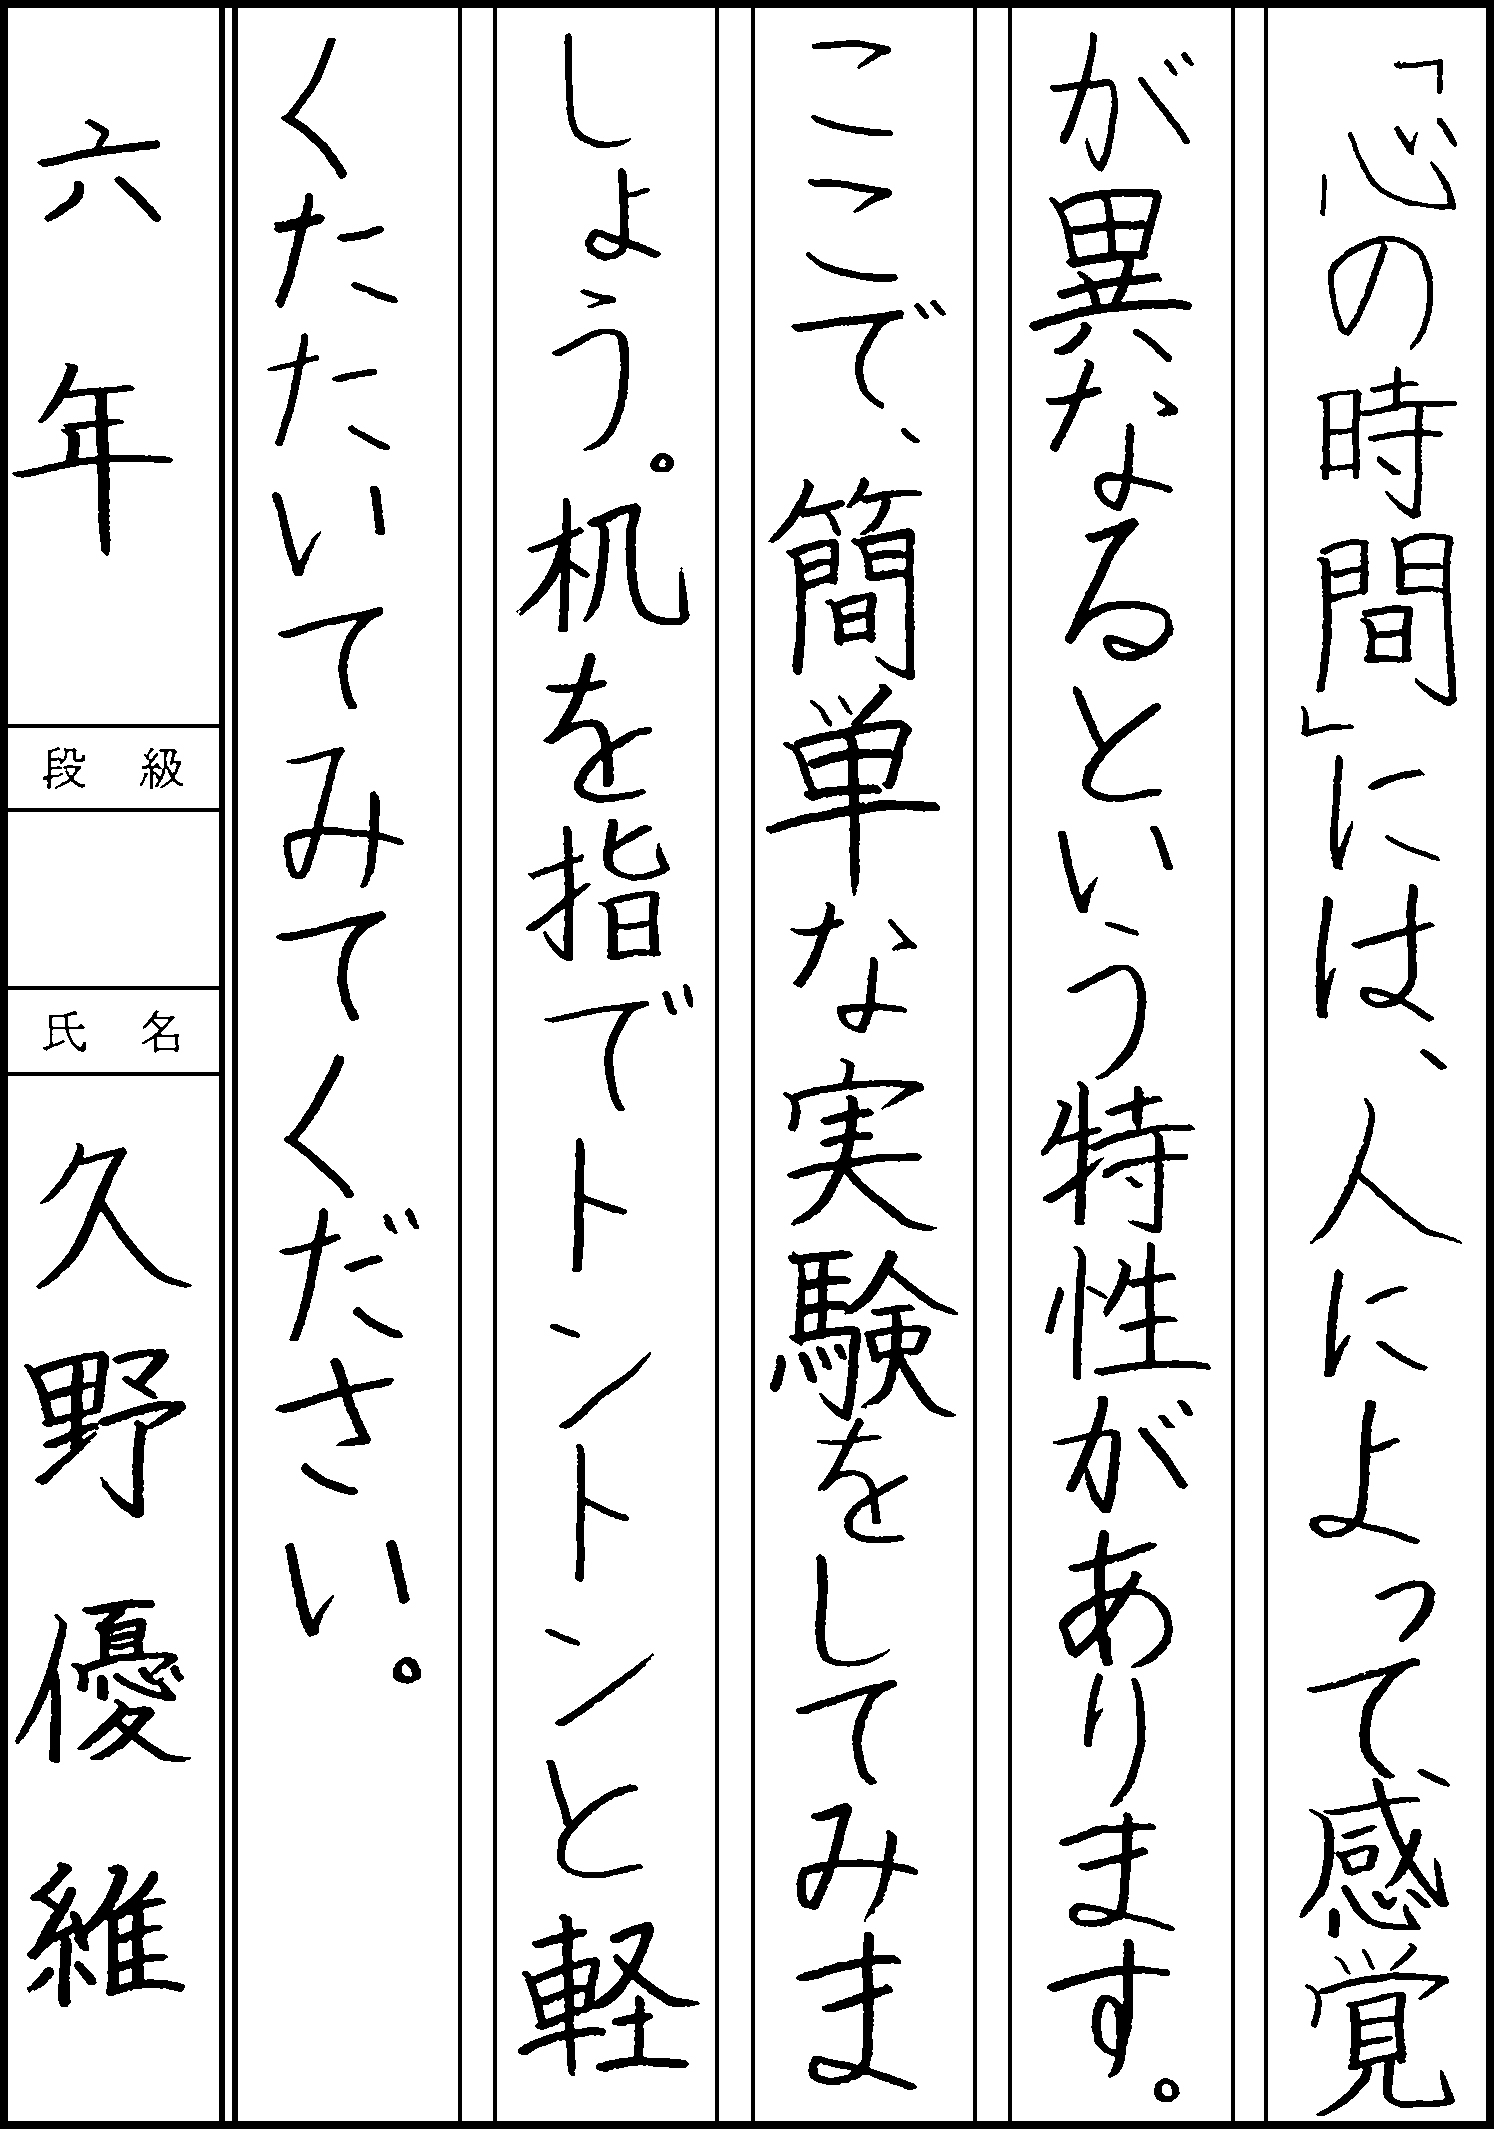 「心の時間」には、人によって、感覚
が異なるという特性があります。
ここで、簡単な実験をしてみま
しょう。机を指でトントンと軽
くたたいてみてください。
六年
段級
氏名
久野優維